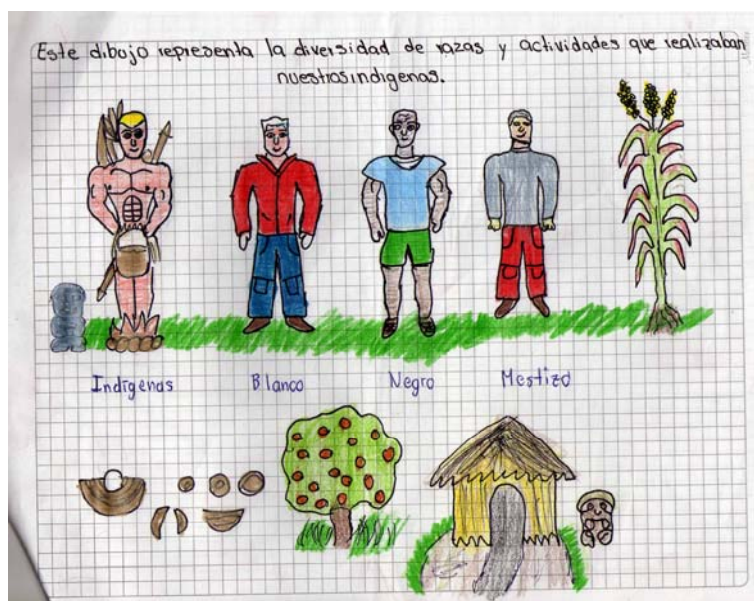 Este dibujo representa la diversidad de razas y actividades que realizaban
nuestros indigenas.
Indígenas Blanco Negro Mestizo